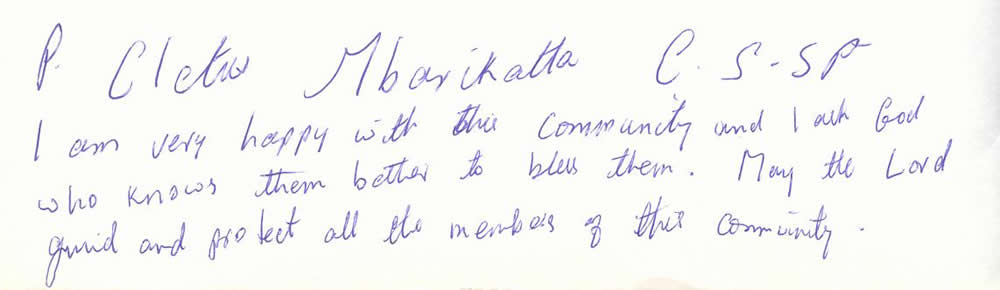 P. Cletus Mbarikatta C.S.SP
I am very happy with this community and I ask God
who knows them better to bless them. May the Lord
guid and protect all the members of this community.